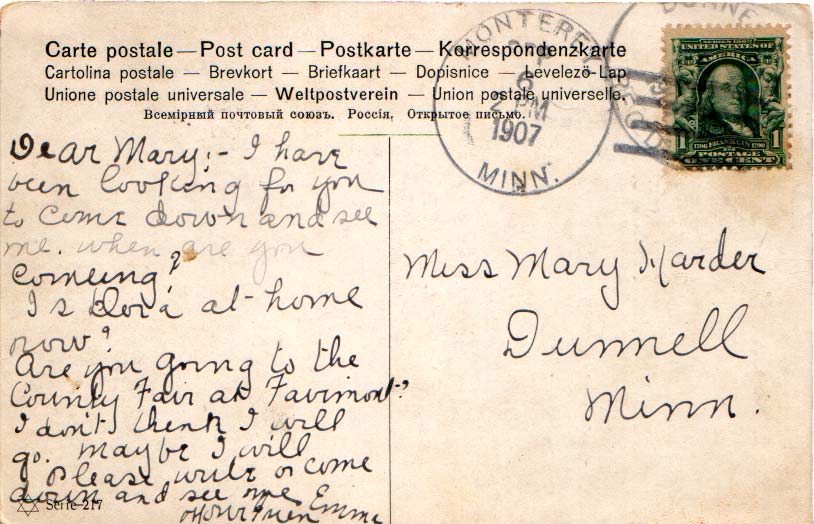 Carte postale — Post card — Postkarte — Korrespondenzkarte
Cartolina postale — Brevkort — Briefkaart — Dopisnice — Levelező-Lap
Unione postale universale — Weltpostverein — Union postale universelle.
Всемірный почтовый союзъ. Россія. Открытое письмо.
MONTEREY
SEP
6
2 PM
1907
MINN.
SERIES 1902
UNITED STATES OF
AMERICA
1 FRANKLIN 1
POSTAGE
ONE CENT
Dear Mary:- I have
been looking for you
to come down and see
me. when are you
comeing?
Is Dora at home
now?
Are you going to the
County Fair at Fairmont?
I don't think I will
go. maybe I will
Please write or come
down and see me
your frien Emma
Serie 217
Miss Mary Harder
Dunnell
Minn.